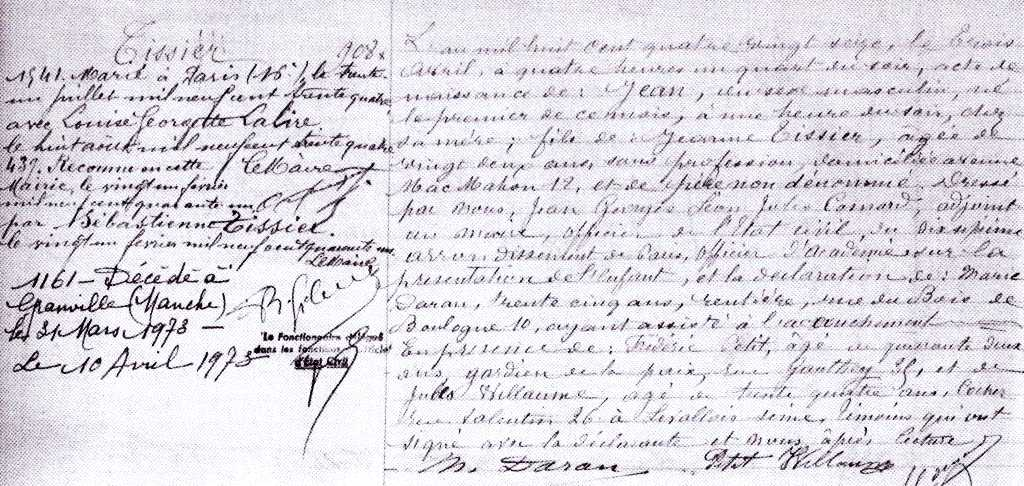 Tissier
908
1541. Marié à Paris (16e), le trente
un juillet mil neuf cent trente quatre
avec Louise Georgette Lalire
le huit août mil neuf cent trente quatre
439. Reconnu en cette Le Maire
Mairie, le vingt un février
mil neuf cent quarante un
par Sébastienne Tissier.
le vingt un février mil neuf cent quarante un.
Le Maire
1161 - Décédé à
Granville (Manche)
le 31 Mars 1973 -
Le 10 Avril 1973
Le Fonctionnaire
dans les fonctions d'Officier
d'État Civil
L'an mil huit cent quatre vingt seize, le trois
Avril, à quatre heures un quart du soir, acte de
naissance de : Jean, du sexe masculin, né
le premier de ce mois, à une heure du soir, chez
sa mère ; fils de : Jeanne Tissier, âgée de
vingt deux ans, sans profession, domiciliée avenue
Mac Mahon 12, et de père non dénommé. Dressé
par nous, Jean Georges Léon Jules Comard, adjoint
au maire, officier de l'État civil, du seizième
arrondissement de Paris, officier d'Académie sur la
présentation de l'enfant, et la déclaration de : Marie
Daran, trente cinq ans, rentière, rue du Bois de
Boulogne 10, ayant assisté à l'accouchement
En présence de : Frédéric Petit, âgé de quarante deux
ans, gardien de la paix, rue Gauthey et de
Jules Villaume, âgé de trente quatre ans, cocher
rue Valentin 26 à Levallois Seine, témoins qui ont
signé avec la déclarante et nous après lecture
M. Daran Petit Villaume